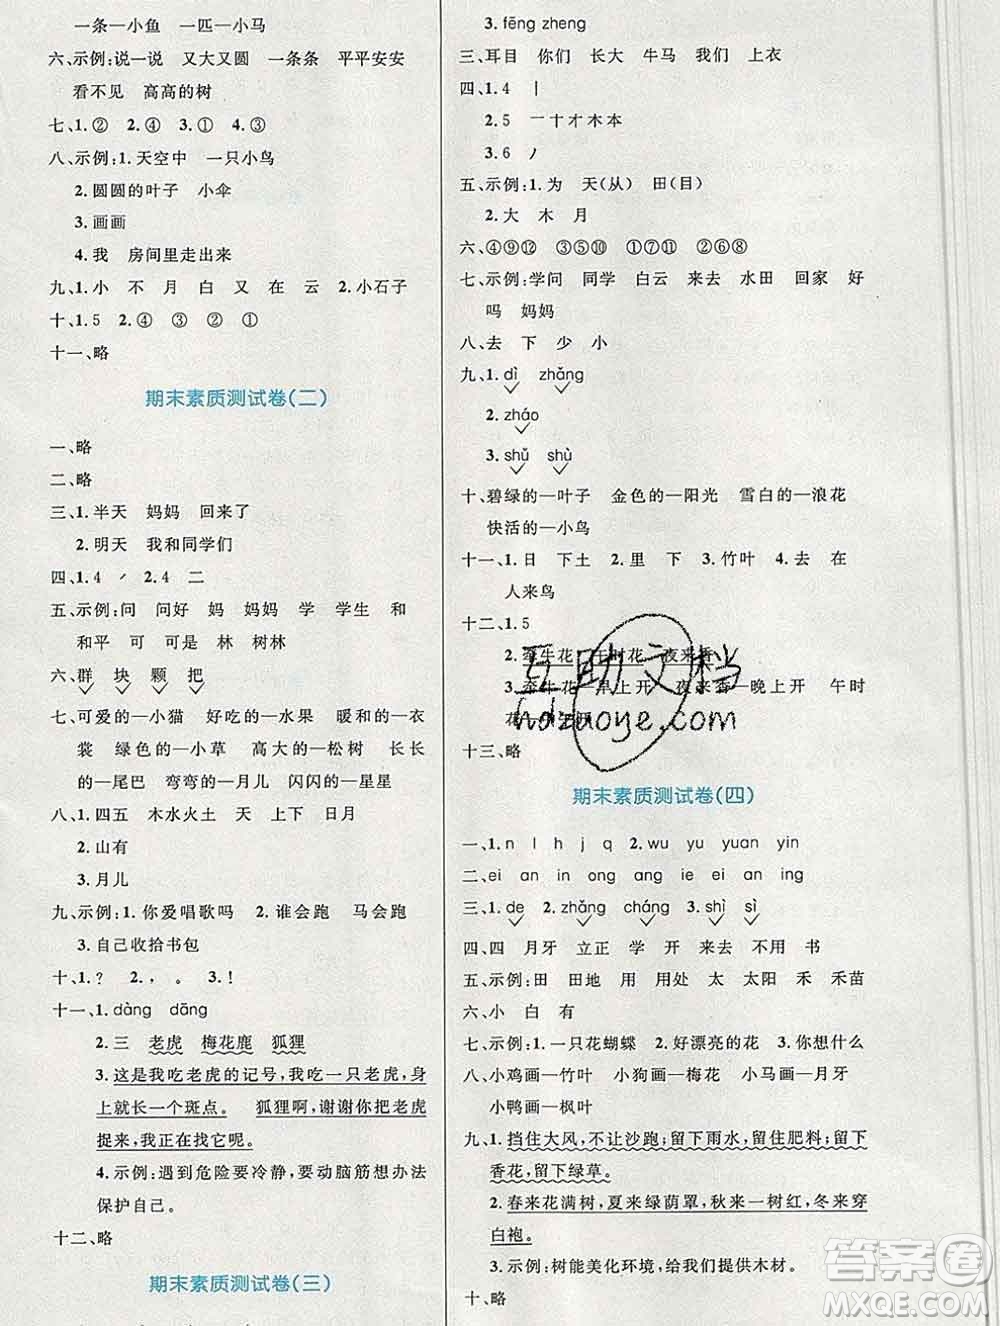 一条—小鱼 一匹—小马
六、示例:说一说 又大又圆 一条条 平平安安
看不见 高高的树
七、1.② 2.④ 3.① 4.③
八、示例:1.天空中 一只小鸟
2.圆圆的叶子 小伞
3.画画
4.我 房间里走出来
九、1.小 不 月 白 又 在 云 2.小石子
十、1.5 2.④ ③ ② ①
十一、略
期末素质测试卷(二)
一、略
二、略
三、1.半天 妈妈 回来了
2.明天 我和同学们
四、1.4 ㇒ 2.4 二
五、示例:问 问好 妈 妈妈 学 学生 和
和平 可 可是 林 树林
六、群 块 颗 把
七、可爱的—小猫 好吃的—水果 暖和的—衣
裳 绿色的—小草 高大的—松树 长长
的—尾巴 弯弯的—月儿 闪闪的—星星
八、1.四五 木水火土 天 上下 日月
2.山有
3.月儿
九、示例:1.你爱唱歌吗 2.谁会跑 马会跑
3.自己收拾书包
十、1.? 2., 。 3.!
十一、1.dàng dāng
2.三 老虎 梅花鹿 狐狸
3.这是我吃老虎的记号,我吃一只老虎,身
上就长一个斑点。 狐狸啊,谢谢你把老虎
捉来,我正在找它呢。
4.示例:遇到危险要冷静,要动脑筋想办法
保护自己。
十二、略
期末素质测试卷(三)
3.fēng zheng
三、耳目 你们 长大 牛马 我们 上衣
四、1.4 丨
2.5 一十才木本
3.6 丿
五、示例:1.为 天(从) 田(目)
2.大 木 月
六、④⑨⑫ ③⑤⑩ ①⑦⑪ ②⑥⑧
七、示例:学问 同学 白云 来去 水田 回家 好
吗 妈妈
八、去 下 少 小
九、1.dì zhǎng
2.zháo
3.shǔ shù
十、碧绿的—叶子 金色的—阳光 雪白的—浪花
快活的—小鸟
十一、1.日 下土 2.里 下 3.竹叶 4.去 在
人来鸟
十二、1.5
2.牵牛花 午时花 夜来香
3.牵牛花—早上开 夜来香—晚上开 午时
花—中午开
十三、略
期末素质测试卷(四)
一、1.n l h j q 2.wu yu yuan yin
二、ei an in ong ang ie ei an
三、1.de 2.zhǎng cháng 3.shì sì
四、四 月牙 立正 学 开 来去 不用 书
五、示例:田 田地 用 用处 太 太阳 禾 禾苗
六、小 白 有
七、示例:1.一只花蝴蝶 2.好漂亮的花 3.你想什么
八、小鸡画—竹叶 小狗画—梅花 小马画—月牙
小鸭画—枫叶
九、1.挡住大风,不让沙跑;留下雨水,留住肥料;留下
香花,留下绿草。
2.春来花满树,夏来绿荫罩,秋来一树红,冬来穿
白袍。
3.示例:树能美化环境,给我们提供木材。
十、略
互助文档
hdzuoye.com
答案圈
MXQE.COM